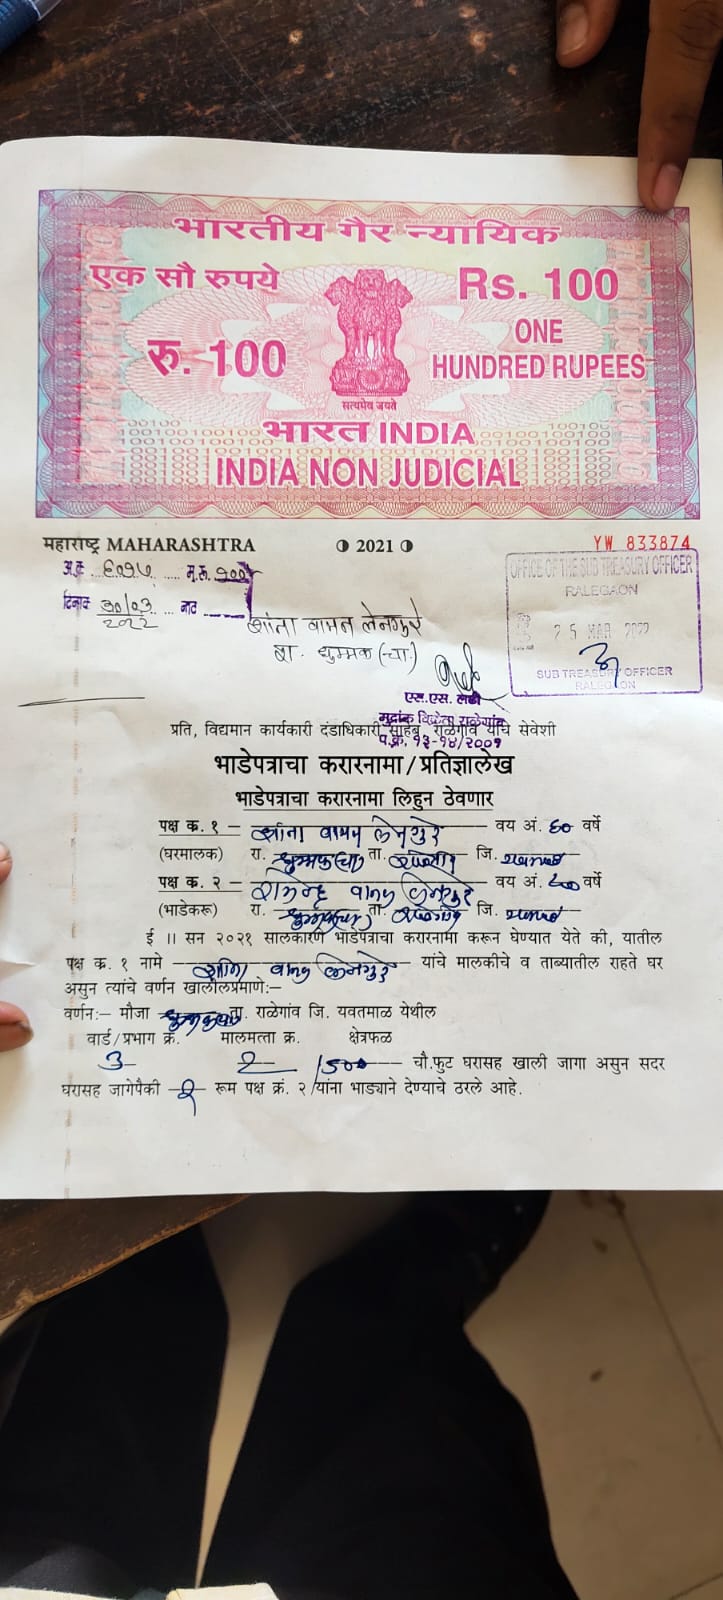 भारतीय गैर न्यायिक
एक सौ रुपये
Rs. 100
रु. 100
ONE
HUNDRED RUPEES
सत्यमेव जयते
भारत INDIA
INDIA NON JUDICIAL
महाराष्ट्र MAHARASHTRA
2021
YW 833874
अ.क्र. ६०१५ मु.रू. १००
दिनांक ३०/०३/२०२२ नाव
शांता वामन लेनगुरे
रा. धुम्मक (चा.)
OFFICE OF THE SUB TREASURY OFFICER
RALEGAON
25 MAR 2022
SUB TREASURY OFFICER
RALEGAON
एस.एस.
मुद्रांक विक्रेता राळेगांव
प.क्र. १३-१४/२००१
प्रति, विद्यमान कार्यकारी दंडाधिकारी साहेब, राळेगांव यांचे सेवेशी
भाडेपत्राचा करारनामा/प्रतिज्ञालेख
भाडेपत्राचा करारनामा लिहुन ठेवणार
पक्ष क. १ – शांता वामन लेनगुरे वय अं. ६० वर्षे
(घरमालक) रा. धुम्मक(चा) ता. राळेगांव जि. यवतमाळ
पक्ष क. २ – वामन लेनगुरे वय अं. ४० वर्षे
(भाडेकरू) रा. धुम्मक(चा) ता. राळेगांव जि. यवतमाळ
ई ॥ सन २०२१ सालकारणे भाडेपत्राचा करारनामा करून घेण्यात येते की, यातील
पक्ष क. १ नामे शांता वामन लेनगुरे यांचे मालकीचे व ताब्यातील राहते घर
असुन त्यांचे वर्णन खालीलप्रमाणे:–
वर्णन:– मौजा ता. राळेगांव जि. यवतमाळ येथील
वार्ड/प्रभाग क्र. मालमत्ता क्र. क्षेत्रफळ
3 2 1500 चौ.फुट घरासह खाली जागा असुन सदर
घरासह जागेपैकी रूम पक्ष क्रं. २ यांना भाड्याने देण्याचे ठरले आहे.